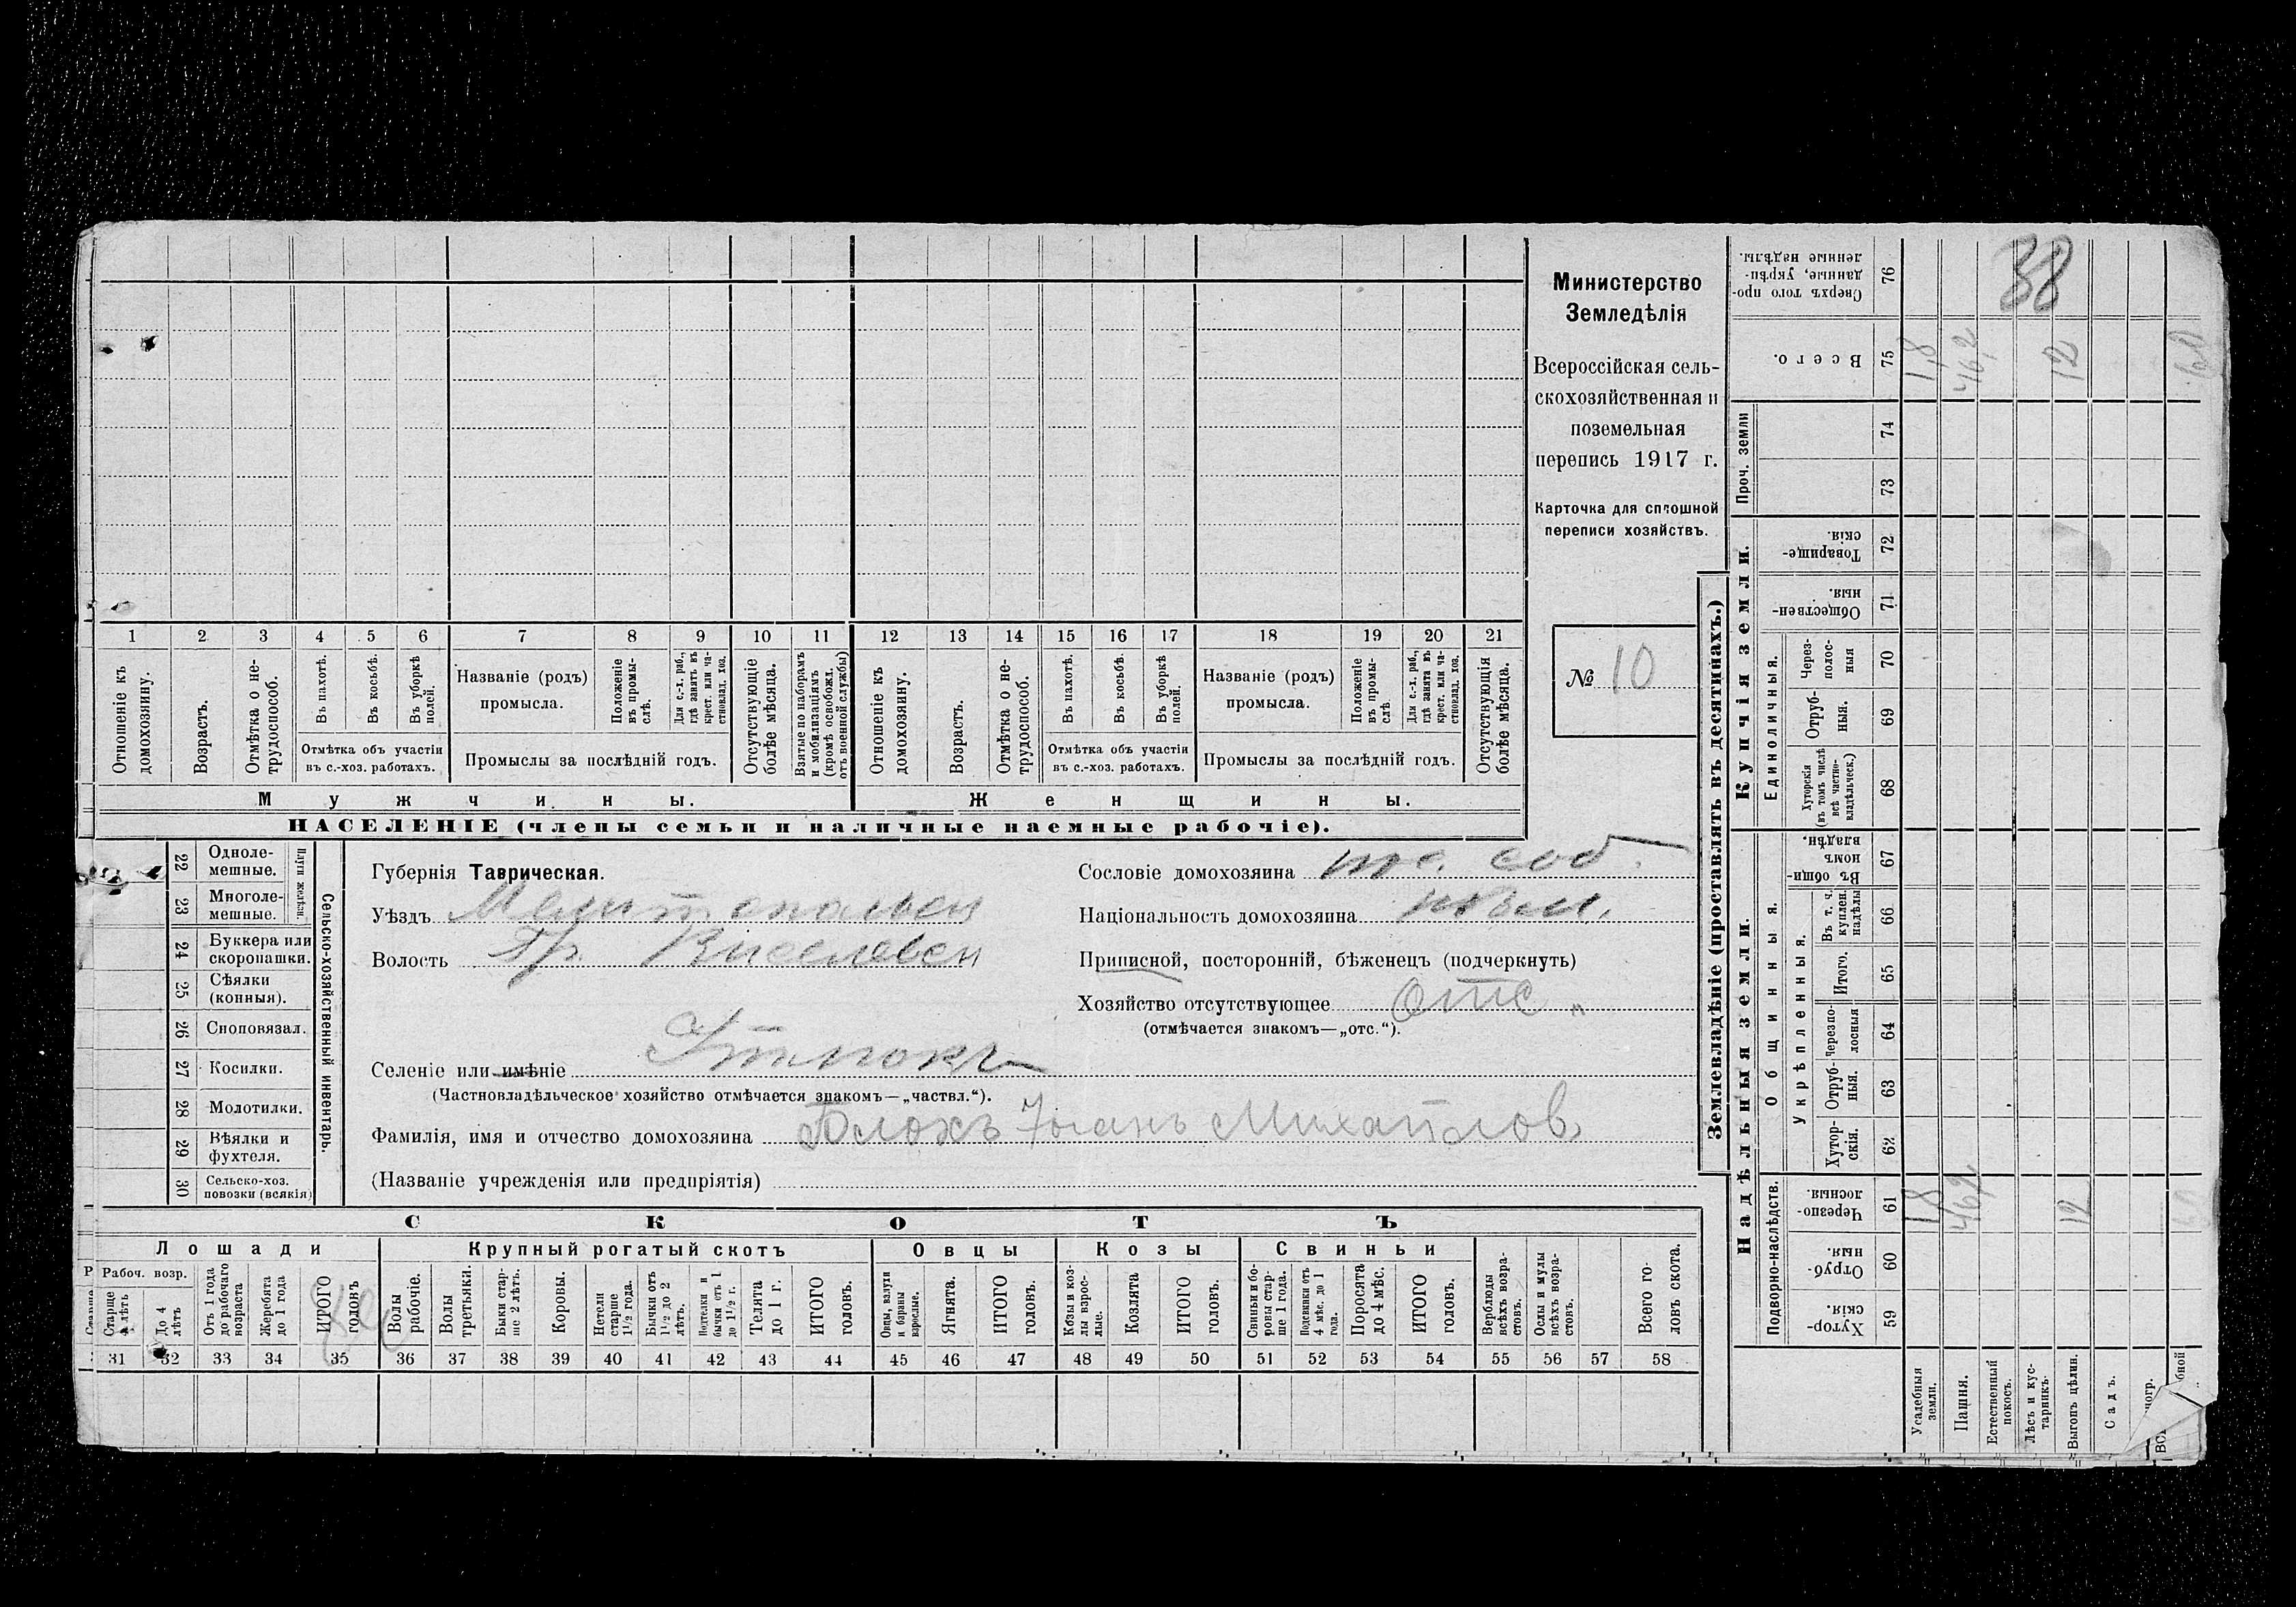 Министерство
Земледѣлія
Всероссійская сель-
скохозяйственная и
поземельная
перепись 1917 г.
Карточка для сплошной
переписи хозяйствъ.
№ 10
1 2 3 4 5 6 7 8 9 10 11 12 13 14 15 16 17 18 19 20 21
Отношеніе къ домохозяину.
Возрастъ.
Отмѣтка о не-трудоспособ.
Въ пахотѣ.
Въ косьбѣ.
Въ уборкѣ полей.
Отмѣтка объ участіи
въ с.-хоз. работахъ.
Названіе (родъ)
промысла.
Положеніе въ промы-слѣ.
Для с.-х. раб., гдѣ занятъ въ крест. или ча-стновлад. хоз.
Промыслы за послѣдній годъ.
Отсутствующіе болѣе мѣсяца.
Взятые по наборамъ и мобилизаціямъ (кромѣ освобожд. отъ военной службы)
Отношеніе къ домохозяину.
Возрастъ.
Отмѣтка о не-трудоспособ.
Въ пахотѣ.
Въ косьбѣ.
Въ уборкѣ полей.
Отмѣтка объ участіи
въ с.-хоз. работахъ.
Названіе (родъ)
промысла.
Положеніе въ промы-слѣ
Для с.-х. раб., гдѣ занята въ крест. или ча-стновлад. хоз.
Промыслы за послѣдній годъ.
Отсутствующія болѣе мѣсяца.
Мужчины.
Женщины.
НАСЕЛЕНІЕ (члены семьи и наличные наемные рабочіе).
22 Одноле-мешные.
23 Многоле-мешные.
Плуги желѣзн.
24 Буккера или скоропашки.
25 Сѣялки (конныя).
26 Сноповязал.
27 Косилки.
28 Молотилки.
29 Вѣялки и фухтеля.
30 Сельско-хоз. повозки (всякія)
Сельско-хозяйственный инвентарь.
Губернія Таврическая.
Уѣздъ
Волость
Селеніе или имѣніе
(Частновладѣльческое хозяйство отмѣчается знакомъ—„частвл.“).
Фамилія, имя и отчество домохозяина Блокъ Михайлов
(Названіе учрежденія или предпріятія)
Сословіе домохозяина
Національность домохозяина
Приписной, посторонній, бѣженецъ (подчеркнуть)
Хозяйство отсутствующее отс „
(отмѣчается знакомъ—„отс.“).
СКОТЪ
Лошади
Крупный рогатый скотъ
Овцы
Козы
Свиньи
Рабоч. возр.
Старше лѣтъ
До 4 лѣтъ
Отъ 1 года до рабочаго возраста
Жеребята до 1 года
ИТОГО головъ
Волы рабочіе.
Волы третьяки.
Быки стар-ше 2 лѣтъ.
Коровы.
Нетели старше 1½ года.
Бычки отъ 1½ до 2 лѣтъ.
бычки отъ 1 до 1½ г.
Телята до 1 г.
ИТОГО головъ.
Овцы, валухи и бараны взрослые.
Ягнята.
ИТОГО головъ.
Козы и коз-лы взрос-лые.
Козлята
ИТОГО головъ.
Свиньи и бо-ровы стар-ше 1 года.
Подсвинки отъ 4 мѣс. до 1 года.
Поросята до 4 мѣс.
ИТОГО головъ.
Верблюды всѣхъ возра-стовъ.
Ослы и мулы всѣхъ возра-стовъ.
Всего го-ловъ скота.
31 32 33 34 35 36 37 38 39 40 41 42 43 44 45 46 47 48 49 50 51 52 53 54 55 56 57 58
Землевладѣніе (проставлять въ десятинахъ.)
Надѣльныя земли.
Купчія земли.
Проч. земли
Подворно-наслѣдств.
Общинныя.
Укрѣпленныя.
Единоличныя.
38
76 Сверхъ того про-данные, укрѣп-ленные надѣлы.
75 Всего. 1,8 46,2 12
74
73
72 Товарище-скія
71 Обществен-ныя
70 Через-полос-ныя
69 Отруб-ныя.
68 Хуторскія (въ томъ числѣ всѣ частно-владѣльческ.)
67 Въ общин-номъ владѣн.
66 Въ т. ч. куплен. надѣлы
65 Итого.
64 Черезпо-лосныя
63 Отруб-ныя.
62 Хутор-скія.
61 Черезпо-лосныя. 1,8 46,2 12
60 Отруб-ныя.
59 Хутор-скія.
Усадебныя земли.
Пашня.
Естественный покосъ.
Лѣсъ и кус-тарникъ.
Выгонъ цѣлин.
Садъ.